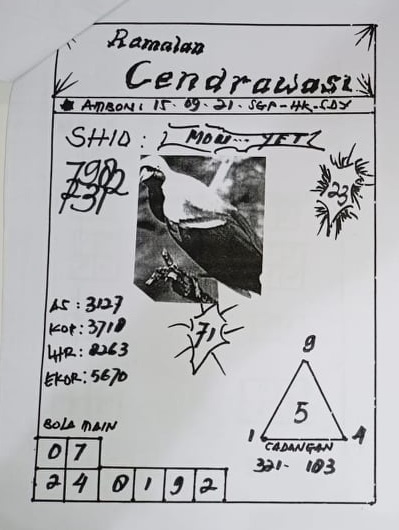 Ramalan
Cendrawasi
AMBON: 15-09-21-SGP-HK-SDY
SHIO: MON... YET
7982
731
23
71
AS: 3127
KOP: 3718
HR: 8263
EKOR: 5670
9
5
1 4
CADANGAN
321- 183
BOLA MAIN
0 7
2 4 8 1 9 2